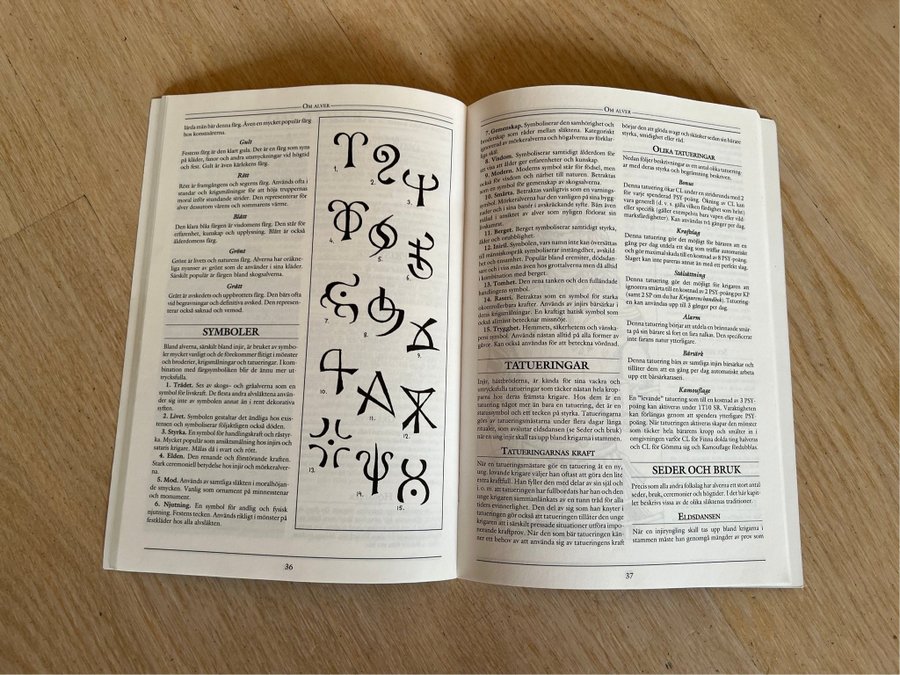 OM ALVER
lärda män bär denna färg. Även en mycket populär färg
hos konstnärerna.
Gult
Festens färg är den klart gula. Det är en färg som syns
på kläder, fanor och andra utsmyckningar vid högtid
och fest. Gult är även kärlekens färg.
Rött
Rött är framgångens och segerns färg. Används ofta i
standar och krigsmålningar för att höja truppernas
moral inför stundande strider. Den representerar för
alver dessutom vårens och sommarens värme.
Blått
Den klara blåa färgen är visdomens färg. Den står för
erfarenhet, kunskap och upplysning. Blått är också
ålderdomens färg.
Grönt
Grönt är livets och naturens färg. Alverna har oräkne-
liga nyanser av grönt som de använder i sina kläder.
Särskilt populär är färgen bland skogsalverna.
Grått
Grått är avskedets och uppbrottets färg. Den bärs ofta
vid begravningar och definitiva avsked. Den represen-
terar också saknad och vemod.
SYMBOLER
Bland alverna, särskilt bland injir, är bruket av symbo-
ler mycket vanligt och de förekommer flitigt i mönster
och broderier, krigsmålningar och tatueringar. I kom-
bination med färgsymboliken blir de ännu mer ut-
trycksfulla.
1. Trädet. Ses av skogs- och gråalverna som en
symbol för livskraft. De flesta andra alvsläktena använ-
der sig inte av symbolen annat än i rent dekorativa
syften.
2. Livet. Symbolen gestaltar det ändliga hos exis-
tensen och symboliserar följaktligen också döden.
3. Styrka. En symbol för handlingskraft och rådstyr-
ka. Mycket populär som ansiktsmålning hos injirn och
sataris krigare. Målas då i svart och rött.
4. Elden. Den renande och förstörande kraften.
Stark ceremoniell betydelse hos injir och mörkeralver-
na.
5. Mod. Används av samtliga släkten i moralhöjan-
de smycken. Vanlig som ornament på minnesstenar
och monument.
6. Njutning. En symbol för andlig och fysisk
njutning. Festens tecken. Används rikligt i mönster på
festkläder hos alla alvsläkten.
1.
2.
3.
4.
5.
6.
7.
8.
9.
10.
11.
12.
13.
14.
15.
36
OM ALVER
7. Gemenskap. Symboliserar den samhörighet och
broderskap som råder mellan släktena. Kategoriskt
ignorerad av mörkeralverna och högalverna av förklar-
liga skäl.
8. Visdom. Symboliserar samtidigt ålderdom för
att visa att ålder ger erfarenheter och kunskap.
9. Modern. Moderns symbol står för födsel, men
också för visdom och närhet till naturen. Betraktas
som en symbol för gemenskap av skogsalverna.
10. Smärta. Betraktas vanligtvis som en varnings-
symbol. Mörkeralverna har den vanligen på sina bygg-
nader och i sina banér i avskräckande syfte. Bärs även
målad i ansiktet av alver som nyligen förlorat sin
livskamrat.
11. Berget. Berget symboliserar samtidigt styrka,
ålder och orubblighet.
12. Iniril. Symbolen, vars namn inte kan översättas
till människospråk symboliserar instängdhet, avskild-
het och ensamhet. Populär bland eremiter, dödsdan-
sare och i viss mån även hos grottalverna men då alltid
i kombination med berget.
13. Tomhet. Den rena tanken och den fulländade
handlingens symbol.
14. Raseri. Betraktas som en symbol för starka
okontrollerbara krafter. Används av injirs bärsärkar i
deras krigsmålningar. En kraftigt batisk symbol som
också allmänt betecknar missnöje.
15. Trygghet. Hemmets, säkerhetens och vänska-
pens symbol. Används nästan alltid på alla former av
gåvor. Kan också användas för att beteckna vördnad.
TATUERINGAR
Injir, hästbröderna, är kända för sina vackra och
uttrycksfulla tatueringar som täcker nästan hela krop-
parna hos deras främsta krigare. Hos dem är en
tatuering något mer än bara en tatuering, det är en
statussymbol och ett tecken på styrka. Tatueringarna
görs av tatueringsmästarna under flera dagar långa
ritualer, som avslutar eldsdansen (se Seder och bruk)
när en ung injir skall tas upp bland krigarna i stammen.
TATUERINGARNAS KRAFT
När en tatueringsmästare gör en tatuering åt en ny,
ung, lovande krigare väljer han oftast att göra den lite
extra kraftfull. Han fyller den med delar av sin själ och
i. o. m. att tatueringen har fullbordats har han och den
unge krigaren sammanlänkats av en tunn tråd för alla
tiders evinnerlighet. Den del av sig som han knyter i
tatueringen gör också att tatueringen tillåter den unge
krigaren att i särskilt pressade situationer utföra impo-
nerande kraftprov. När den som bär tatueringen kän-
ner ett behov av att använda sig av tatueringens kraft
börjar den att glöda svagt och skänker sedan sin bärare
styrka, smidighet eller råd.
OLIKA TATUERINGAR
Nedan följer beskrivningar av en antal olika tatueringar
ar med deras styrka och begränsning beskriven.
Bonus
Denna tatuering ökar CL under en stridsrunda med 2
för varje spenderad PSY-poäng. Ökning av CL kan
vara generell (d. v. s. gälla vilken färdighet som helst)
eller specifik (gäller exempelvis bara vapen eller vild-
marksfärdigheter). Kan användas två gånger per dag.
Kraftslag
Denna tatuering gör det möjligt för bäraren att en
gång per dag utdela ett slag som träffar automatiskt
och gör maximal skada till en kostnad av 8 PSY-poäng.
Slaget kan inte pareras annat än med ett perfekt slag.
Stålsättning
Denna tatuering gör det möjligt för krigaren att
ignorera smärta till en kostnad av 2 PSY-poäng per KP
(samt 2 SP om du har Krigarens handbok). Tatuering-
en kan användas upp till 3 gånger per dag.
Alarm
Denna tatuering börjar att utdela en brinnande smär-
ta på sin bärare så fort en fara nalkas. Den specificerar
inte farans natur ytterligare.
Bärsärk
Denna tatuering bärs av samtliga injirs bärsärkar och
tillåter dem att en gång per dag automatiskt arbeta
upp ett bärsärkaraseri.
Kamouflage
En "levande" tatuering som till en kostnad av 3 PSY-
poäng kan aktiveras under 1T10 SR. Varaktigheten
kan förlängas genom att spendera ytterligare PSY-
poäng. När tatueringen aktiveras skapar den mönster
som täcker hela bärarens kropp och smälter in i
omgivningen varför CL för Finna dolda ting halveras
och CL för Gömma sig och Kamouflage fördubblas.
SEDER OCH BRUK
Precis som alla andra folkslag har alverna ett stort antal
seder, bruk, ceremonier och högtider. I det här kapit-
let beskrivs vissa av de olika släktenas traditioner.
ELDSDANSEN
När en injeyngling skall tas upp bland krigarna i
stammen måste han genomgå mängder av prov som
37